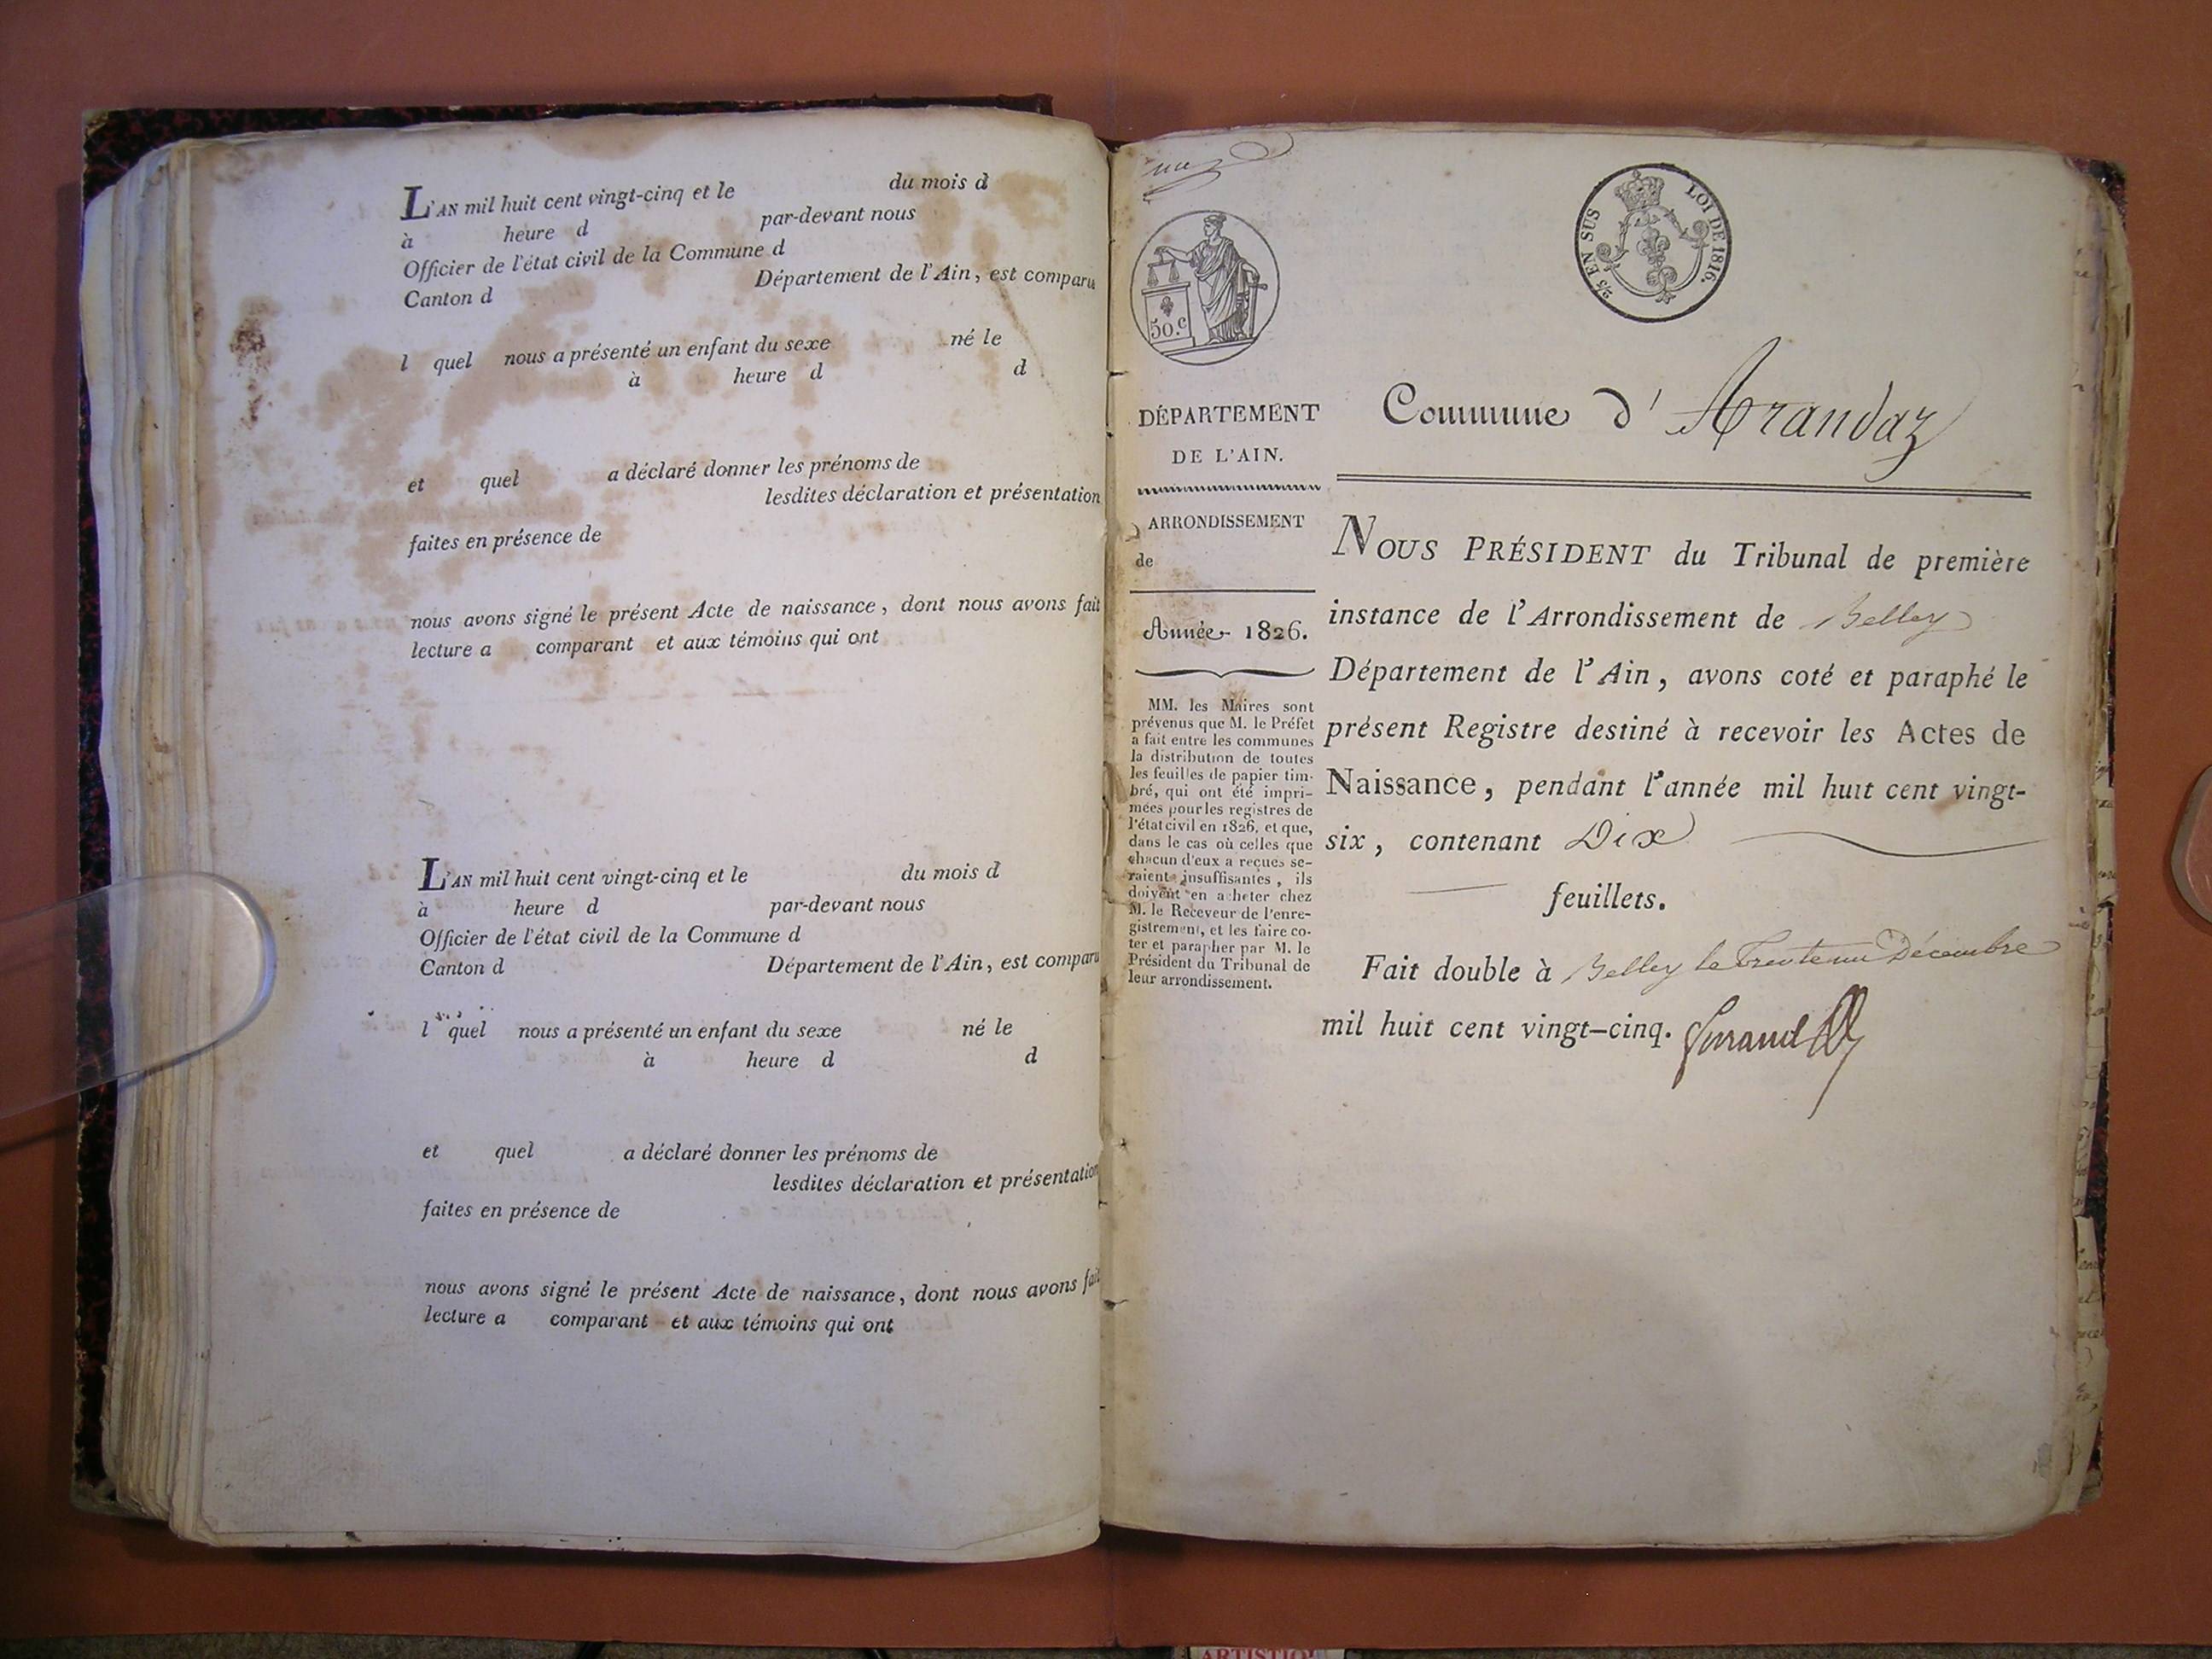 L'AN mil huit cent vingt-cinq et le du mois d
à heure d par-devant nous
Officier de l'état civil de la Commune d
Canton d Département de l'Ain, est comparu
l quel nous a présenté un enfant du sexe né le
à heure d d
et quel a déclaré donner les prénoms de
lesdites déclaration et présentation
faites en présence de
nous avons signé le présent Acte de naissance, dont nous avons fait
lecture a comparant et aux témoins qui ont
L'AN mil huit cent vingt-cinq et le du mois d
à heure d par-devant nous
Officier de l'état civil de la Commune d
Canton d Département de l'Ain, est comparu
l quel nous a présenté un enfant du sexe né le
à heure d d
et quel a déclaré donner les prénoms de
lesdites déclaration et présentation
faites en présence de
nous avons signé le présent Acte de naissance, dont nous avons fait
lecture a comparant et aux témoins qui ont
50.c
EN SUS LOI DE 1816.
DÉPARTEMENT
DE L'AIN.
ARRONDISSEMENT
de
Année 1826.
MM. les Maires sont
prévenus que M. le Préfet
a fait entre les communes
la distribution de toutes
les feuilles de papier tim-
bré, qui ont été impri-
mées pour les registres de
l'état civil en 1826, et que,
dans le cas où celles que
chacun d'eux a reçues se-
raient insuffisantes, ils
doivent en acheter chez
M. le Receveur de l'enre-
gistrement, et les faire co-
ter et parapher par M. le
Président du Tribunal de
leur arrondissement.
Commune d'Arandaz
NOUS PRÉSIDENT du Tribunal de première
instance de l'Arrondissement de Belley
Département de l'Ain, avons coté et paraphé le
présent Registre destiné à recevoir les Actes de
Naissance, pendant l'année mil huit cent vingt-
six, contenant Dix
feuillets.
Fait double à Belley le Trente un Décembre
mil huit cent vingt-cinq.
ARTISTIQ